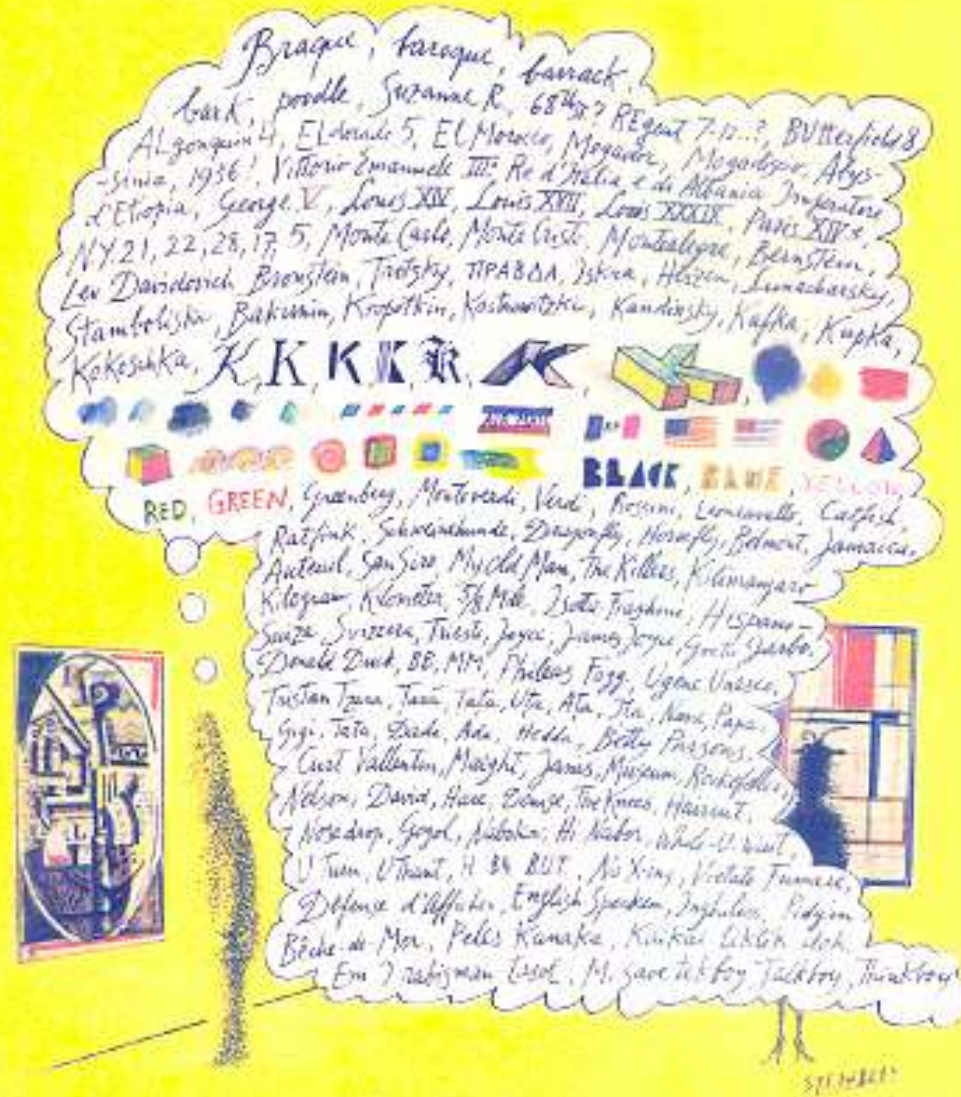 Braque, baroque, barrack,
bark, poodle, Suzanne R., 68th St? REgent 7-12..?, BUtterfield 8
ALgonquin 4, ELdorado 5, El Morocco, Mogador, Mogadiscio, Abys-
-sinia, 1936!, Vittorio Emanuele III° Re d'Italia e di Albania Imperatore
d'Etiopia, George V, Louis XIV, Louis XVII, Louis XXXIX, Paris XIVe,
NY 21, 22, 28, 17, 5, Monte Carlo, Monte Cristo, Montealegre, Bernstein,
Lev Davidovich Bronstein, Trotzky, ПРАВДА, Iskra, Herzen, Lunacharsky,
Stamboliski, Bakunin, Kropotkin, Kostrowitzki, Kandinsky, Kafka, Kupka,
Kokoschka, K, K, K, K, K, K, K,
BLACK, BLUE, YELLOW,
RED, GREEN, Greenberg, Monteverdi, Verdi, Rossini, Leoncavallo, Catfish,
Ratfink, Schweinehunde, Dragonfly, Horsefly, Belmont, Jamaica,
Auteuil, San Siro, My Old Man, The Killers, Kilimanjaro
Kilogram, Kilometer, 5/8 Mile, Isotta Fraschini, Hispano-
Suiza, Svizzera, Trieste, Joyce, James Joyce, Greta Garbo,
Donald Duck, BB, MM, Phileas Fogg, Ugene Unesco,
Tristan Tzara, Tata, Uta, Ata, Ita, Nana, Papa,
Gigi, Tata, Dada, Ada, Hedda, Betty Parsons,
Curt Vallentin, Maeght, Janis, Museum, Rockefeller,
Nelson, David, Hare, Denise, The Knees, Harriet,
Nosedrop, Gogol, Nabokov, Hi Nabor, Whole-U-Want,
U Turn, U Thant, H BUT, No X-ing, Vietato Fumare,
Défense d'Afficher, English Spoken, Pidgin
Bêche de Mer, Peles Kanaka, Kaikai Liklik
Em I, M. save tokboy Talkboy, Thinkboy
STEINBERG